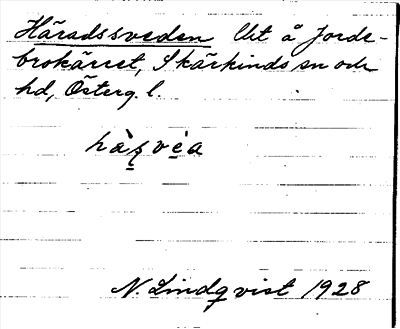 Häradssveden Ut å Jords-
brokärret, Skärkinds sn och
hd, Österg. l.
N. Lindqvist 1928